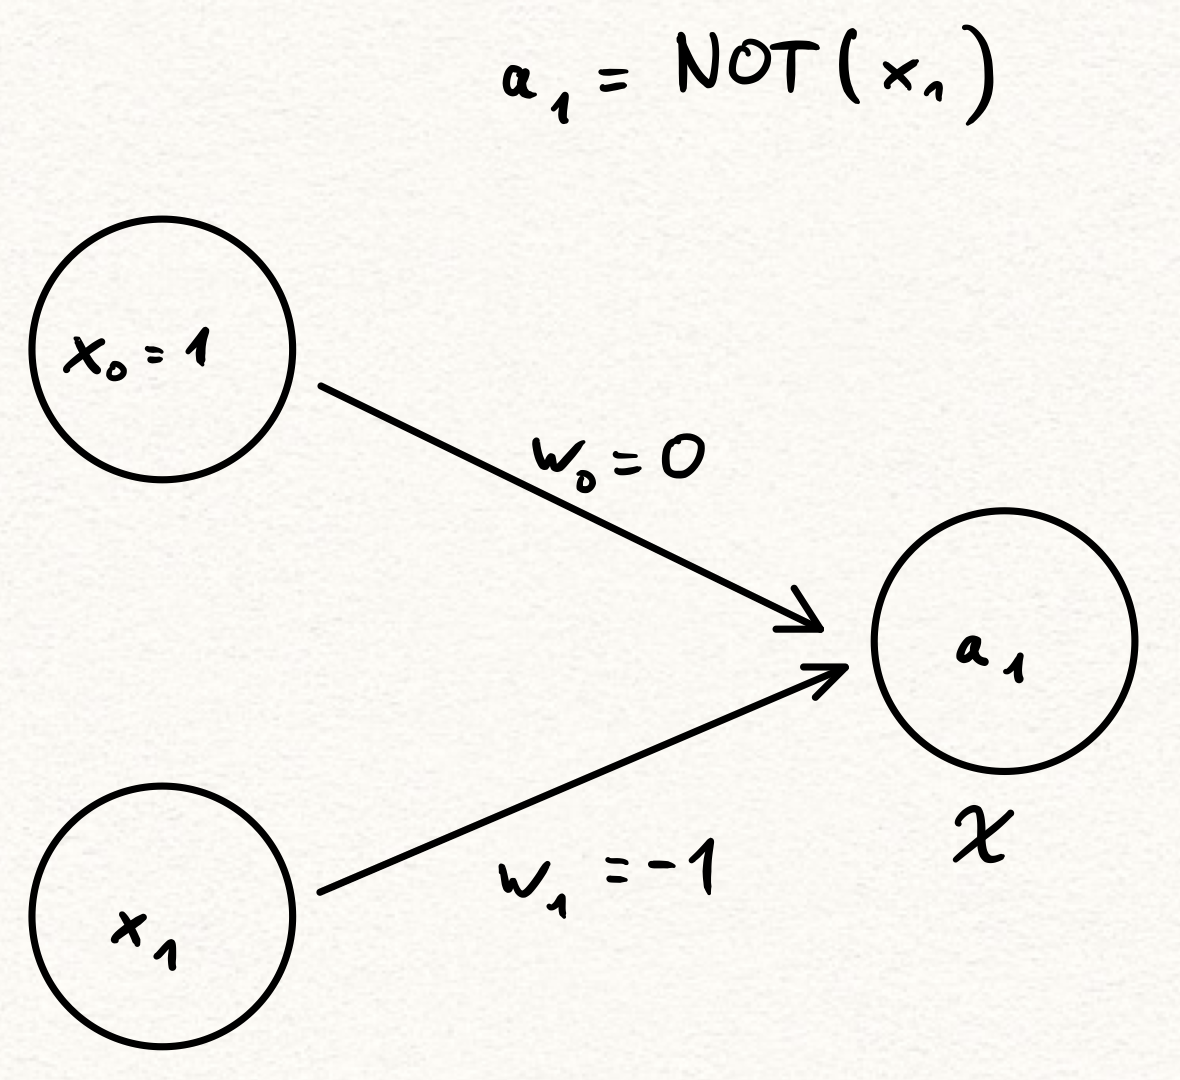 a₁ = NOT(x₁)
x₀ = 1
w₀ = 0
a₁
χ
w₁ = -1
x₁